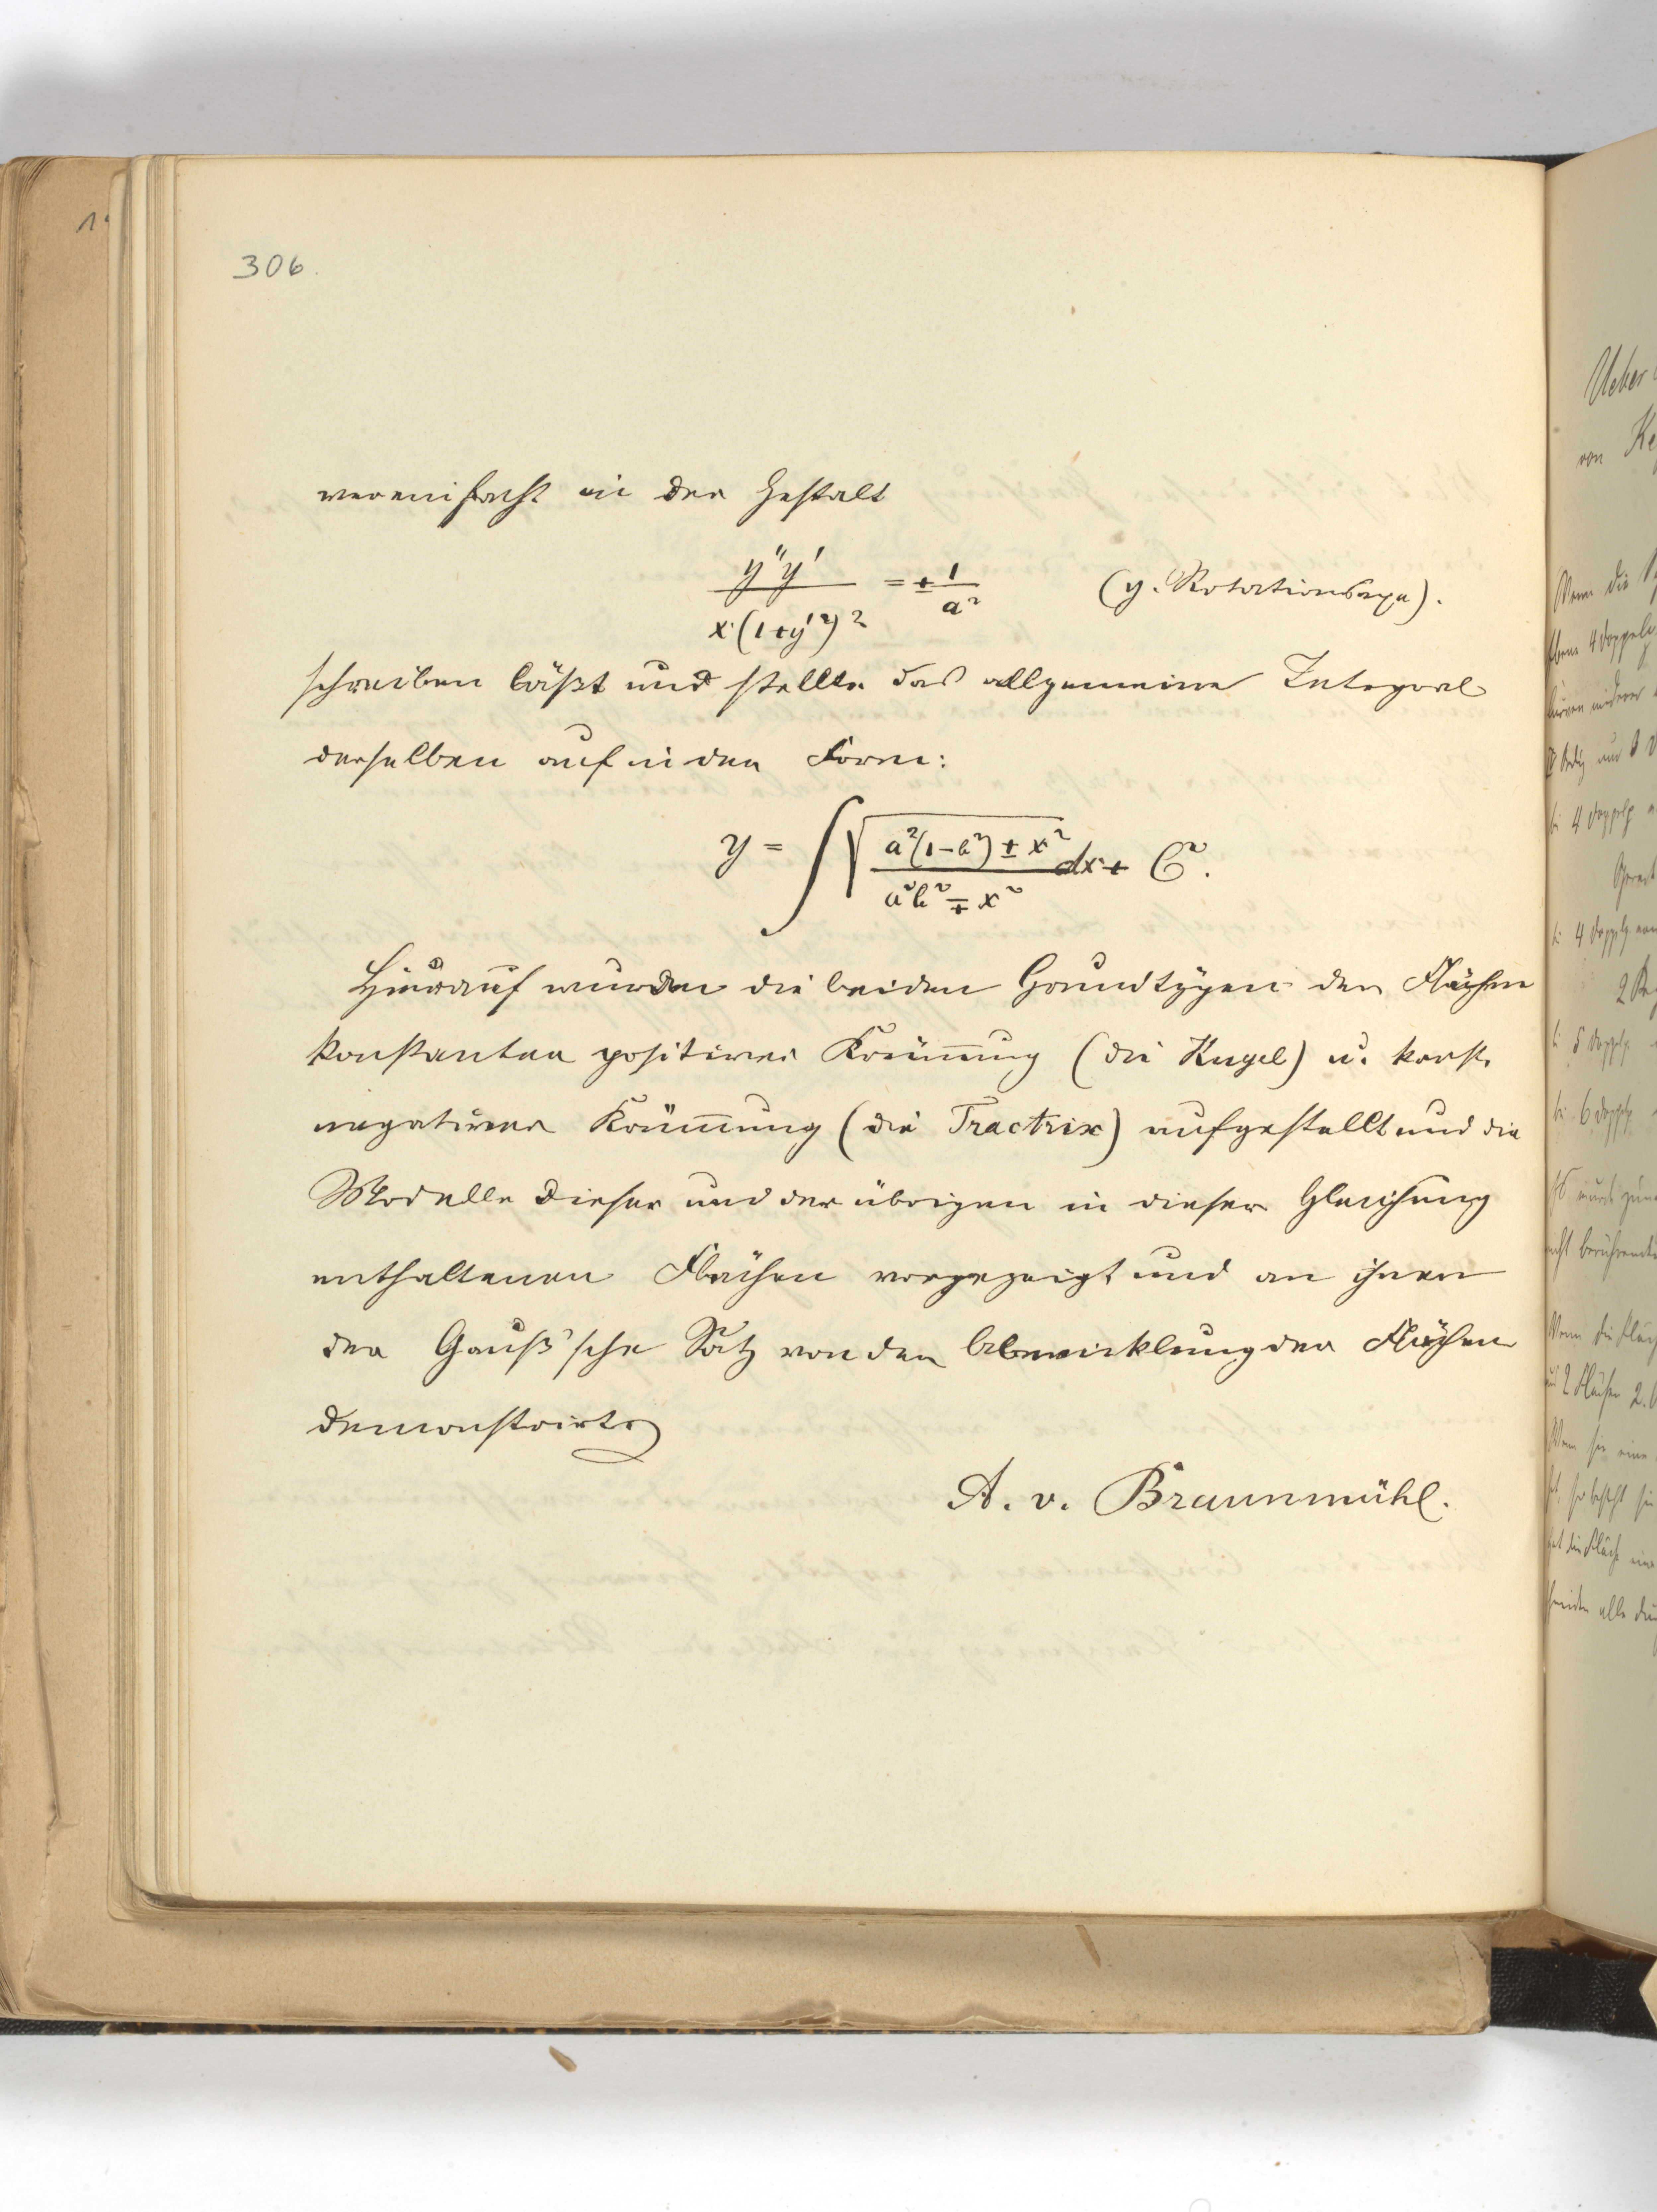 306.
vereinfacht in der Gestalt
y''y' / x·(1+y'²)² = ± 1/a² (y. Rotationsaxe).
schreiben läßt und stellte das allgemeine Integral
derselben auf in der Form:
y = ∫ √ a²(1-b²) ± x² / a²b² ∓ x² dx + C.
Hierauf wurden die beiden Grundtypen der Flächen
konstanter positiver Krüm̄ung (die Kugel) u. konst.
negativer Krüm̄ung (die Tractrix) aufgestellt und die
Modelle dieser und der übrigen in dieser Gleichung
enthaltenen Flächen vorgezeigt und an ihnen
der Gauß'sche Satz von der Abwicklung der Flächen
demonstrirt
A. v. Braunmühl.
Ueber
von
Wenn die
4
4
2
6